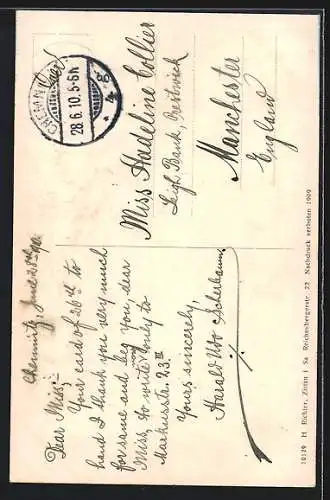 CHEMNITZ
28.6.10. 5-6N
* 4 g
Miss Madeline Collier
Leigh Bank, Prestwich
Manchester
England
Chemnitz, June 28th 1910.
Dear Miss,
Your card of 26th to
hand I thank you very much
for same and beg you, dear
Miss, to write only to
Markusstr. 23 III
Yours sincerely,
Harald Utto Scherbaum
10129 H. Richter, Zittau i Sa Reichenbergerstr. 22 Nachdruck verboten 1909